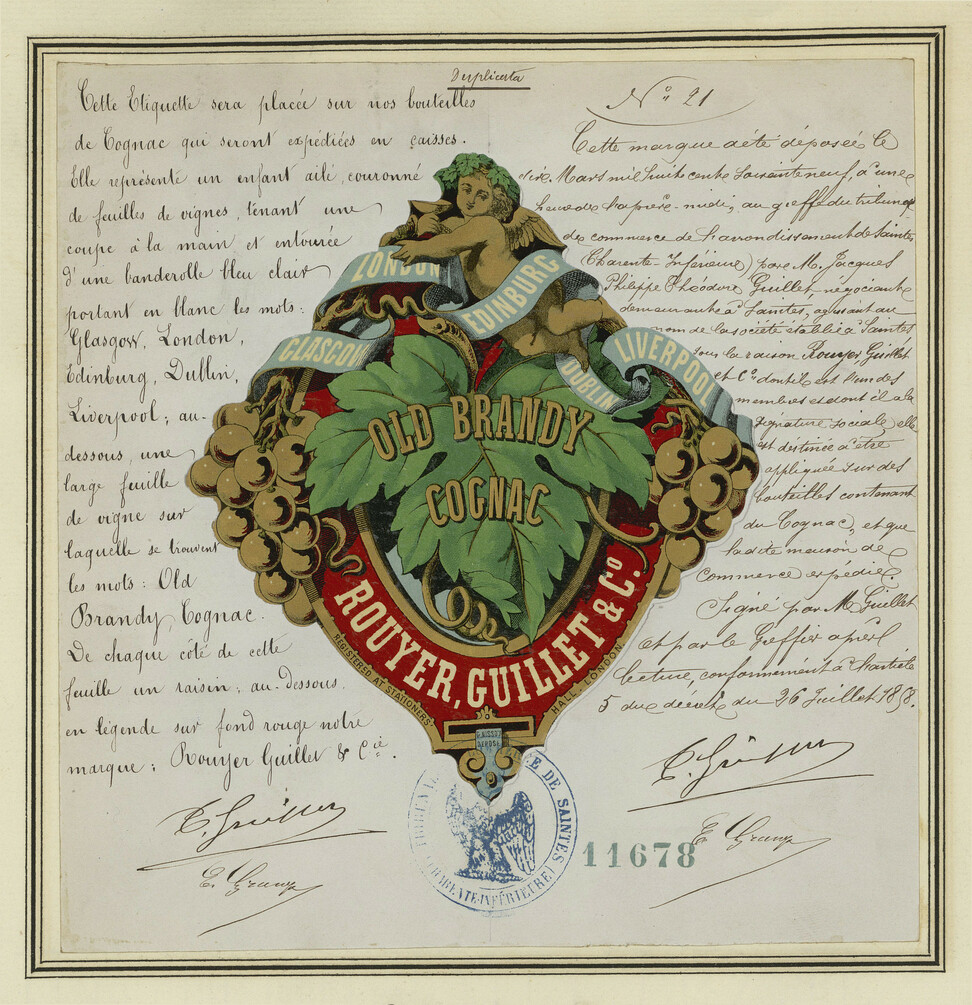 Duplicata
Cette Etiquette sera placée sur nos bouteilles
de Cognac qui seront expédiées en caisses.
Elle représente un enfant ailé, couronné
de feuilles de vignes, tenant une
coupe à la main et entourée
d'une banderolle bleu clair
portant en blanc les mots:
Glasgow, London,
Edinburg, Dublin,
Liverpool; au-
dessous, une
large feuille
de vigne sur
laquelle se trouvent
les mots: Old
Brandy Cognac.
De chaque côté de cette
feuille un raisin; au-dessous,
en légende sur fond rouge notre
marque: Rouyer Guillet & Cie.
T. Guillet
No 21
Cette marque a été déposée le
dix Mars mil huit cent soixante neuf, à une
heure de l'après-midi, au greffe du tribunal
de commerce de l'arrondissement de Saintes
(Charente-Inférieure) par M. Jacques
Philippe Théodore Guillet, négociant
demeurant à Saintes, agissant au
nom de la société établie à Saintes
sous la raison Rouyer Guillet
et Co dont il est l'un des
membres et dont il a la
signature sociale; elle
est destinée à être
appliquée sur des
bouteilles contenant
du Cognac, et que
la dite maison de
commerce expédie.
Signé par M. Guillet
et par le Greffier après
lecture, conformément à l'article
5 du décret du 26 Juillet 1858.
T. Guillet
LONDON
EDINBURG
GLASCOW
DUBLIN
LIVERPOOL
OLD BRANDY
COGNAC
ROUYER, GUILLET & Co.
REGISTERED AT STATIONERS' HALL-LONDON
DE SAINTES
(CHARENTE-INFÉRIEURE)
11678